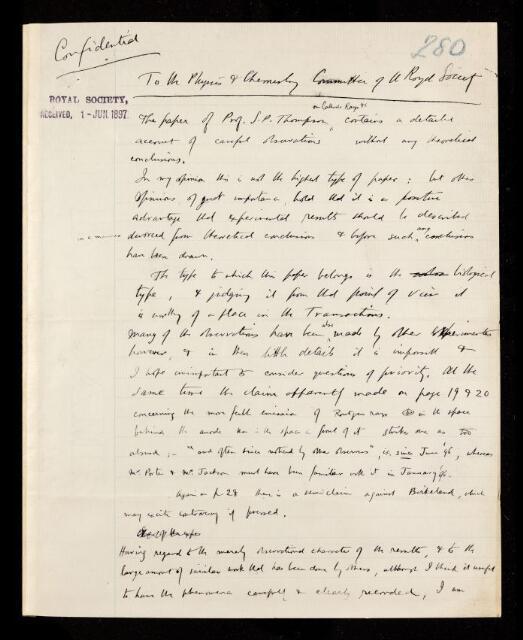 Confidential
280
To the Physics & Chemistry Committee of the Royal Society
ROYAL SOCIETY,
RECEIVED, 1-JUN.1897.
on Cathode Rays &c
The paper of Prof. S.P. Thompson, contains a detailed
account of careful observations without any theoretical
conclusions.
In my opinion this is not the highest type of paper; but other
opinions of great importance, hold that it is a positive
advantage that experimental results should be described
divorced from theoretical conclusions & before such any conclusions
have been drawn.
The type to which this paper belongs is the biological
type, & judging it from that point of view it
is worthy of a place in the Transactions.
Many of the observations have been also made by other experimenters
however, & in these little details it is impossible &
I hope unimportant to consider questions of priority. At the
same time the claim apparently made on page 19 & 20
concerning the more full emission of Rontgen rays in the space
behind the anode than in the space in front of it strikes me as too
absurd; - "and often since noticed by other observers", i.e. since June '96, whereas
Mr Porter & Mr Jackson must have been familiar with it in January '96.
Again on p 28 there is a claim against Birkeland, which
may excite controversy if pressed.
Having regard to the merely observational character of the results, & to the
large amount of similar work that has been done by others, although I think it useful
to have the phenomena carefully & clearly recorded, I am